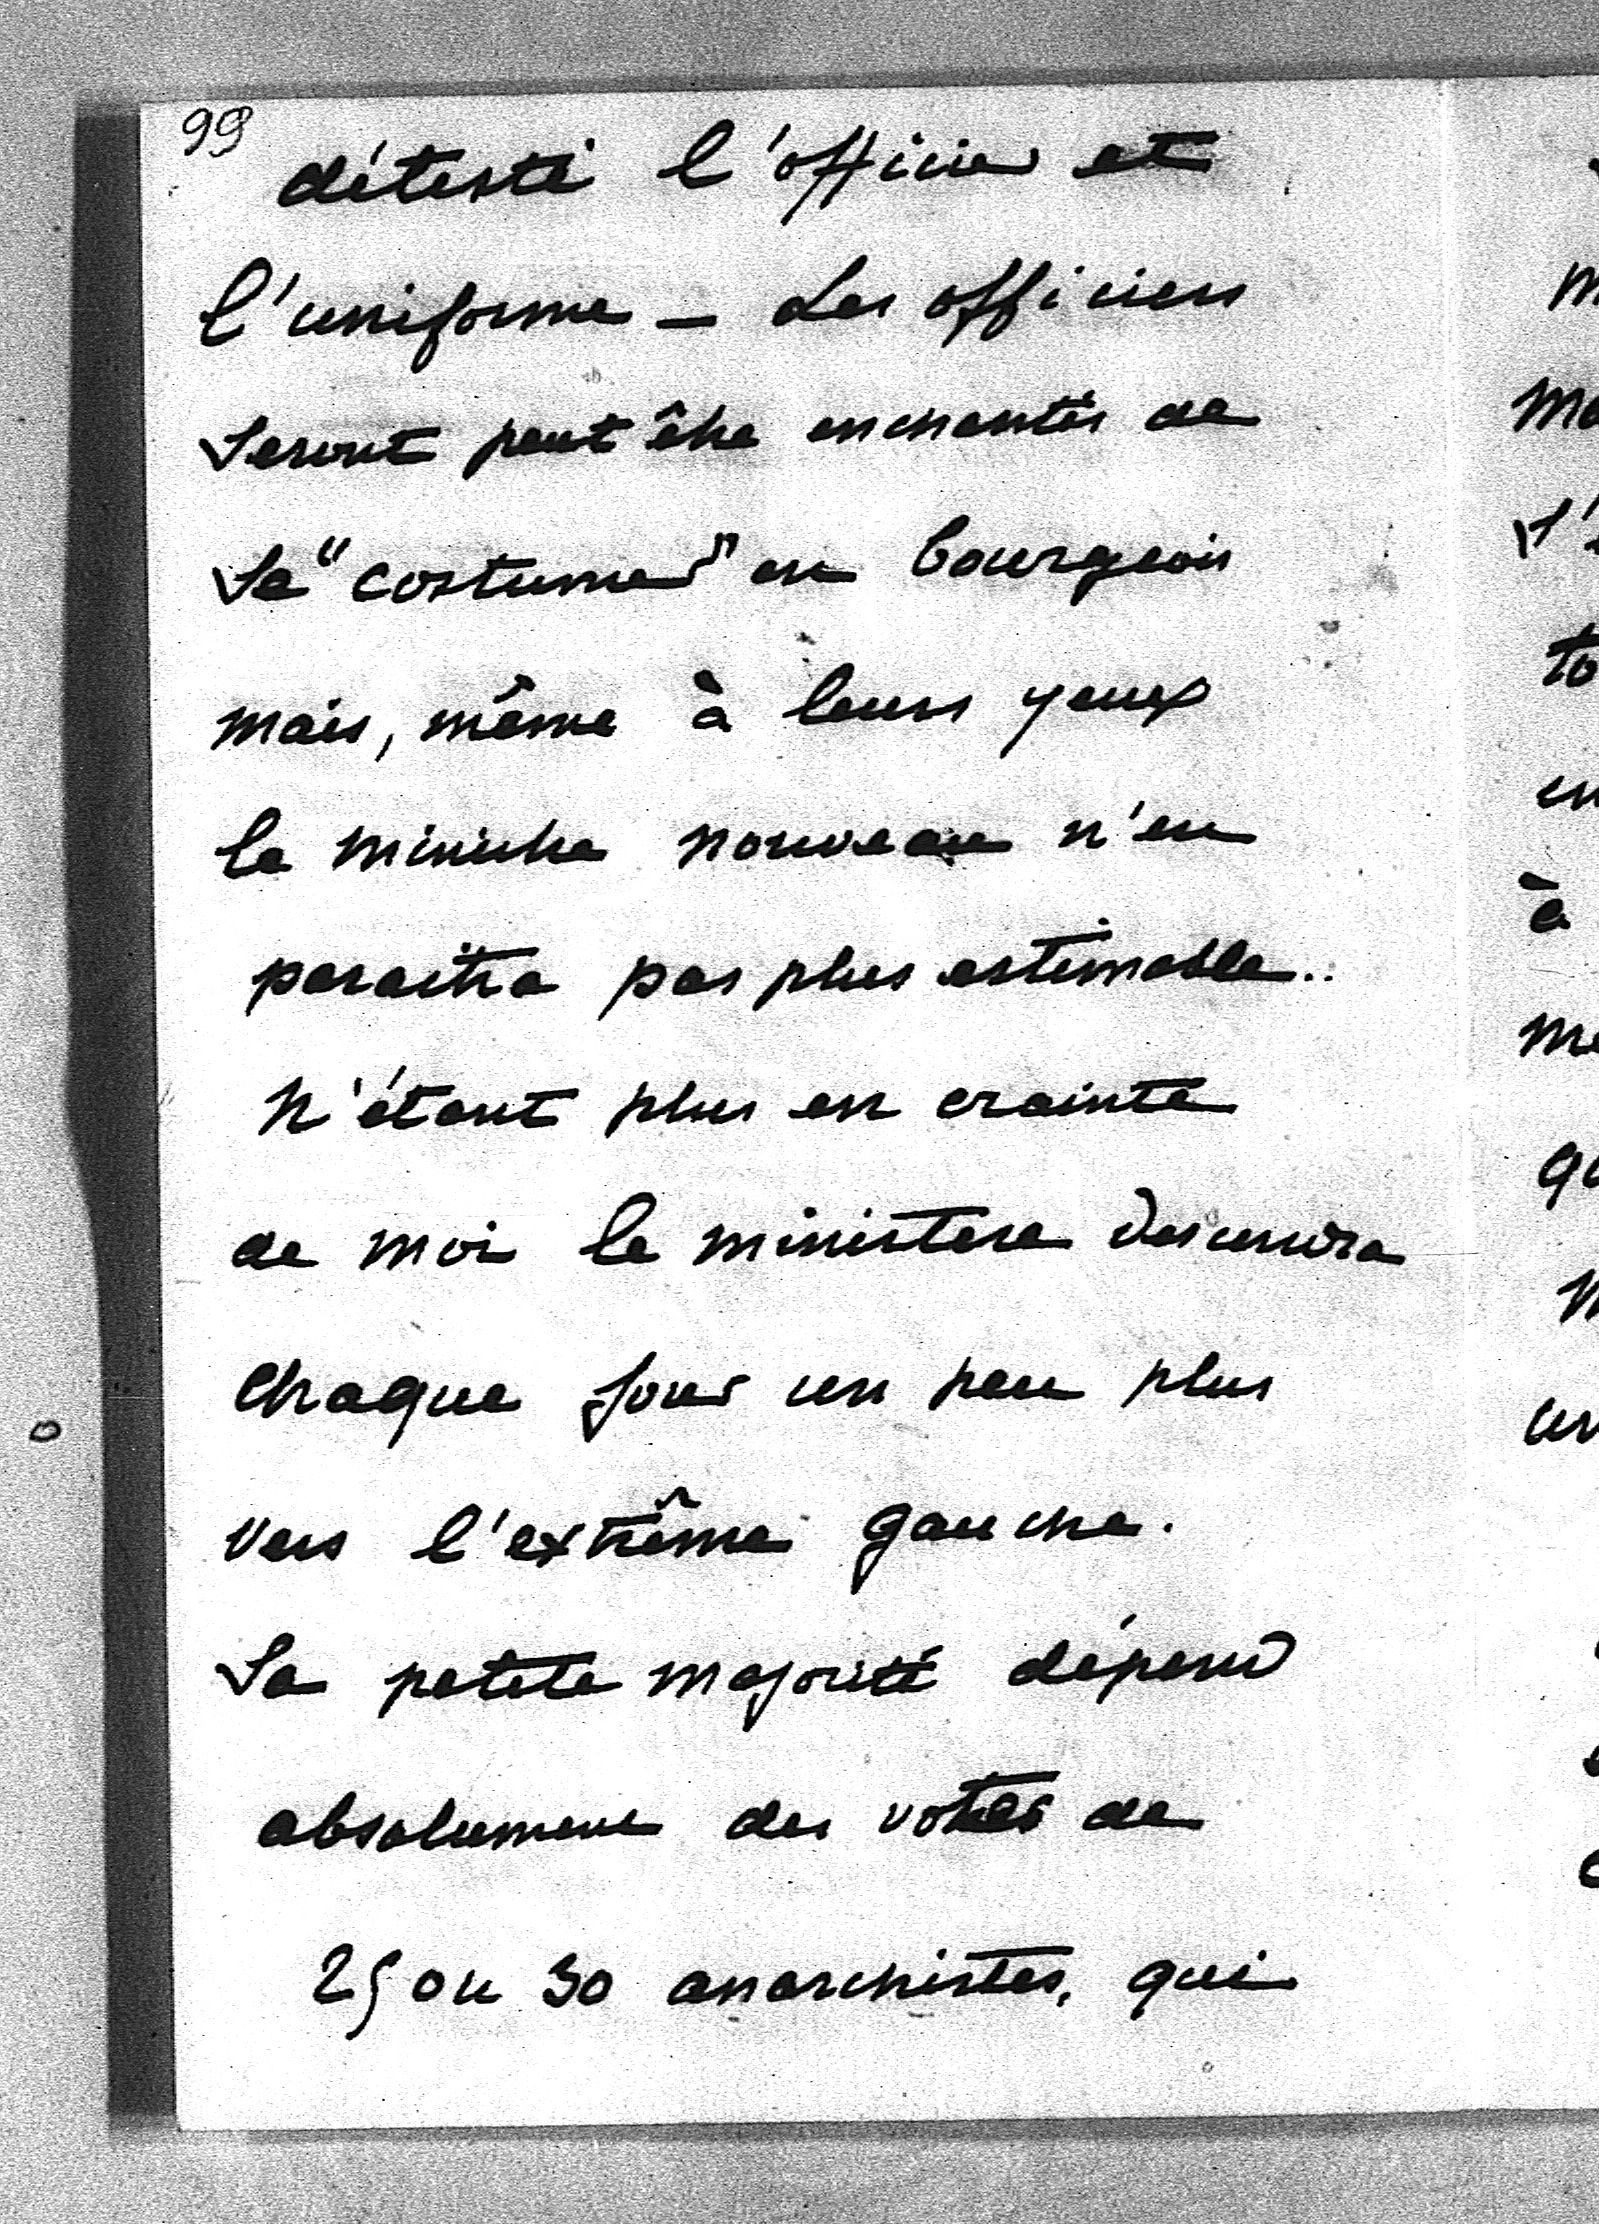 99
détesté l'officier et
l'uniforme _ Les officiers
seront peut être enchantés de
se "costumer" en bourgeois
mais, même à leurs yeux
le ministre nouveau n'en
paraitra pas plus estimable..
N'étant plus en crainte
de moi le ministere descendra
chaque jour un peu plus
vers l'extrême gauche.
Sa petite majorité dépend
absolument des votes de
25 ou 30 anarchistes, qui